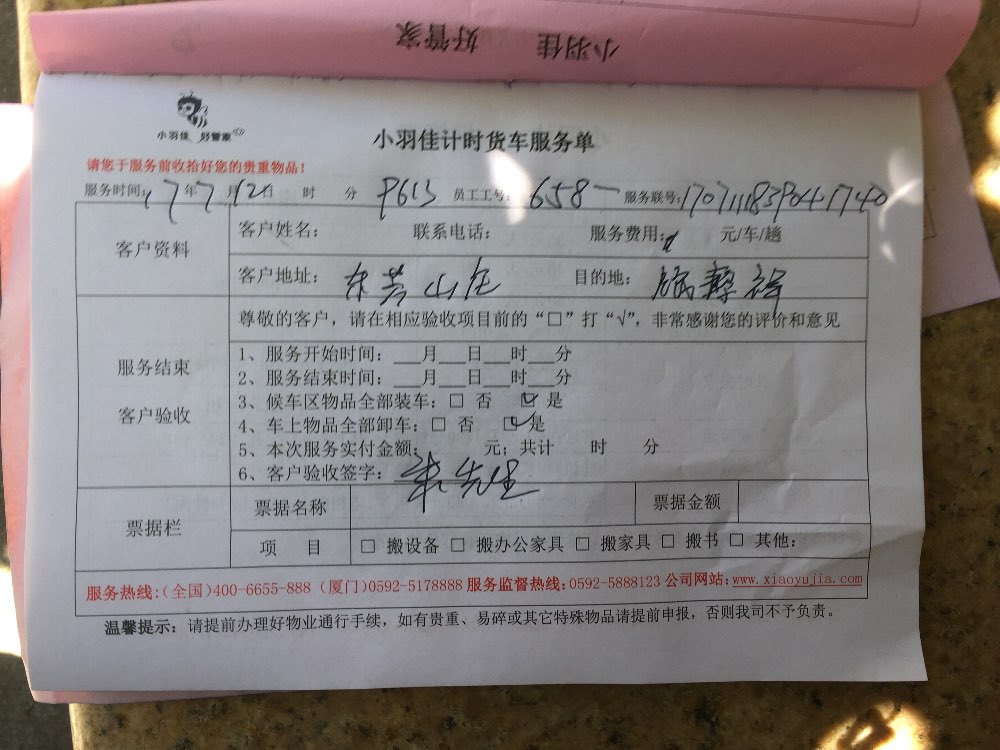 小羽佳 好管家
小羽佳 好管家
小羽佳计时货车服务单
请您于服务前收拾好您的贵重物品！
服务时间：17年7月12日 时 分 9613 员工工号：658 服务联号：
客户资料
客户姓名： 联系电话： 服务费用： 元/车/趟
客户地址：东芳山庄 目的地：
服务结束
客户验收
尊敬的客户，请在相应验收项目前的“□”打“√”，非常感谢您的评价和意见
1、服务开始时间：___月___日___时___分
2、服务结束时间：___月___日___时___分
3、候车区物品全部装车：□ 否 ☑ 是
4、车上物品全部卸车：□ 否 ☑ 是
5、本次服务实付金额： 元；共计 时 分
6、客户验收签字：朱先生
票据栏
票据名称 票据金额
项 目 □ 搬设备 □ 搬办公家具 □ 搬家具 □ 搬书 □ 其他：
服务热线：（全国）400-6655-888（厦门）0592-5178888 服务监督热线：0592-5888123 公司网站：www.xiaoyujia.com
温馨提示：请提前办理好物业通行手续，如有贵重、易碎或其它特殊物品请提前申报，否则我司不予负责。